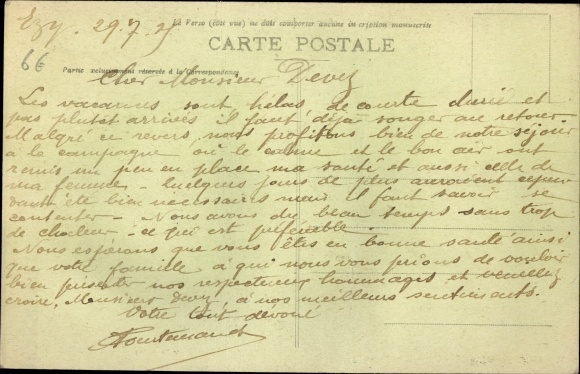 Ezy, 29.7.25
Le Verso (côté vue) ne doit comporter aucune inscription manuscrite
CARTE POSTALE
6€
Partie exclusivement réservée à la Correspondance
Cher Monsieur Devez
Les vacances sont hélas de courte durée et
pas plutôt arrivés il faut déjà songer au retour.
Malgré ce revers, nous profitons bien de notre séjour
à la campagne où le calme et le bon air ont
remis un peu en place ma santé et aussi celle de
ma femme - Quelques jours de plus auraient cependant
été bien nécessaires mais il faut savoir se
contenter - Nous avons du beau temps sans trop
de chaleur - ce qui est préférable.
Nous espérons que vous êtes en bonne santé ainsi
que votre famille à qui nous vous prions de vouloir
bien présenter nos respectueux hommages et veuillez
croire, Monsieur Devez, à nos meilleurs sentiments.
Votre tout dévoué